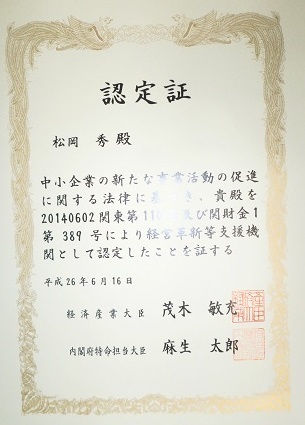 認定証
松岡 秀 殿
中小企業の新たな事業活動の促進
に関する法律に基づき、貴殿を
20140602関東第110号及び関財金1
第389号により経営革新等支援機
関として認定したことを証する
平成26年6月16日
経済産業大臣 茂木 敏充
内閣府特命担当大臣 麻生 太郎